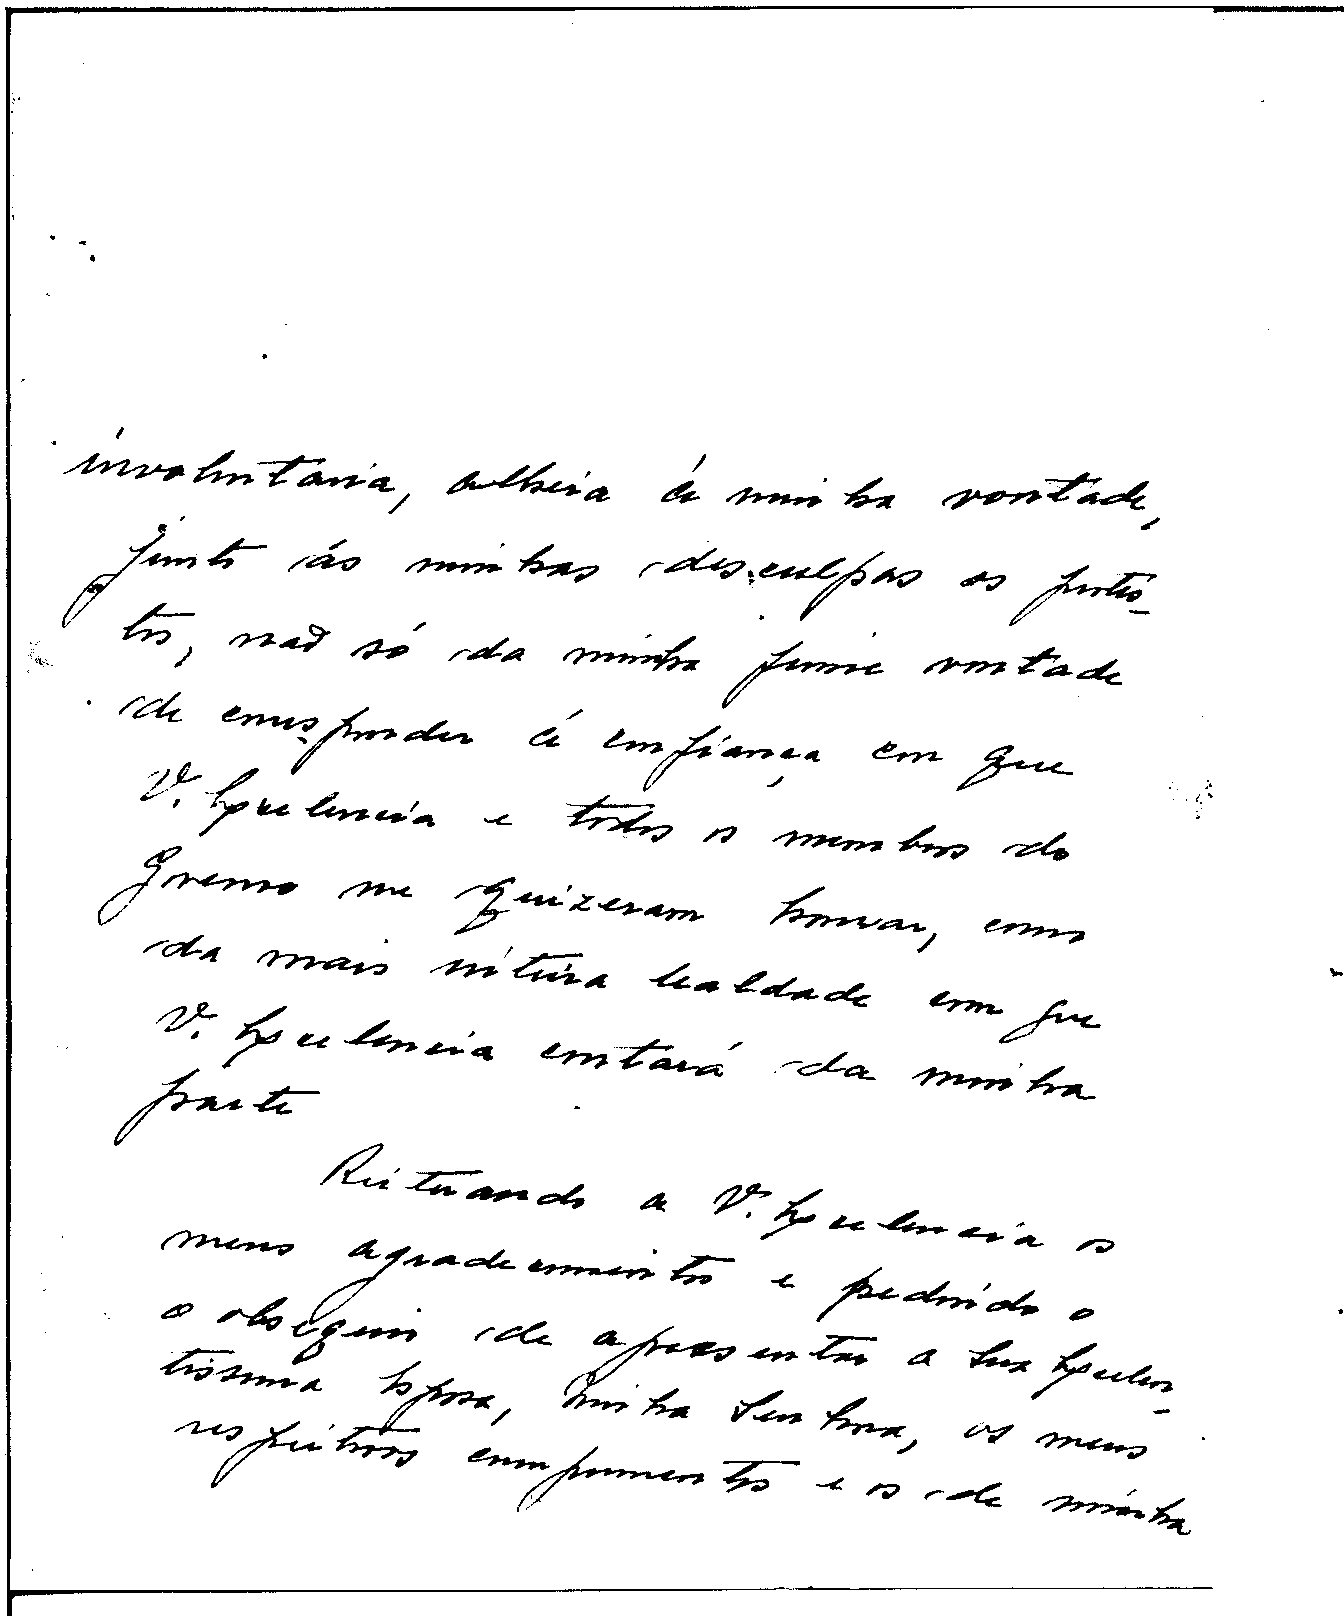 involuntaria, alheia á minha vontade,
junto ás minhas desculpas os protes-
tos, naõ só da minha firme vontade
de corresponder á confiança com que
V. Excelencia e todos os membros do
Governo me quizeram honrar, como
da mais inteira lealdade com que
V. Excelencia contará da minha
parte
Reiterando a V. Excelencia os
meus agradecimentos e pedindo o
o obsequio de apresentar a Sua Excelen-
tissima Esposa, minha Senhora, os meus
respeitosos cumprimentos e os de minha